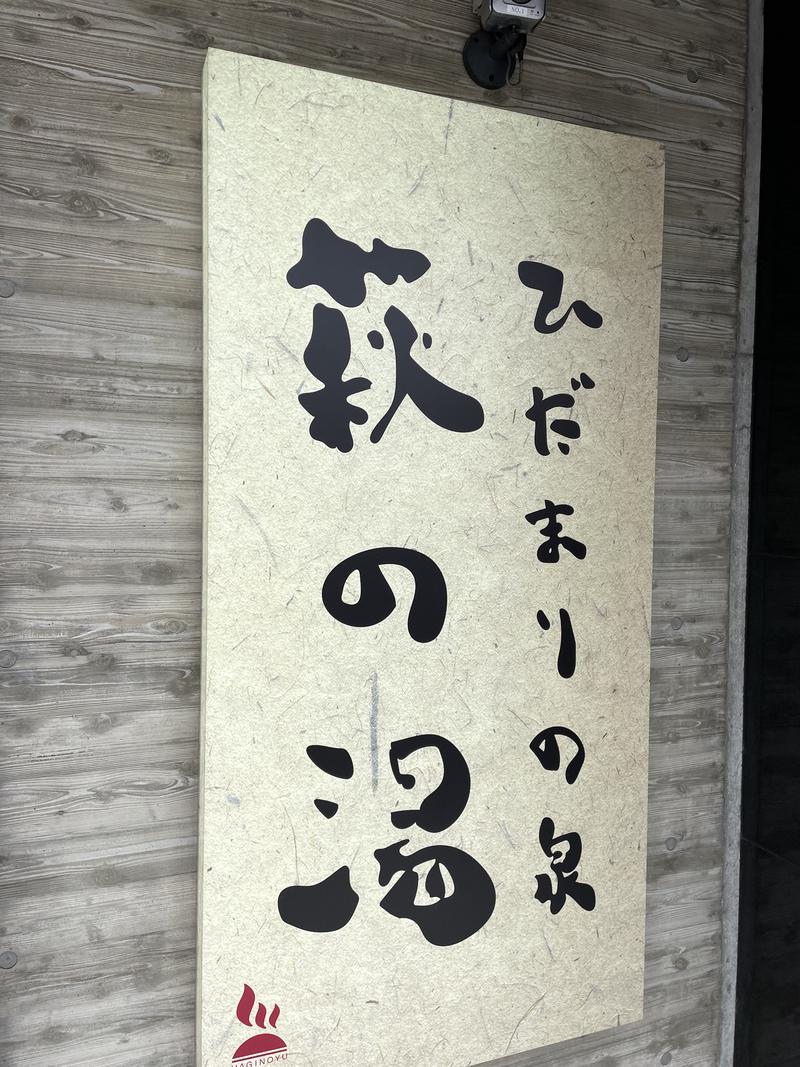 ひだまりの泉
萩の湯
HAGINOYU
NO.1